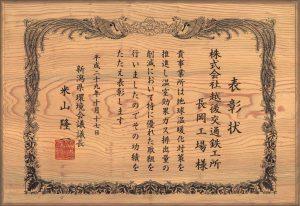 表彰状
株式会社越後交通鉄工所
長岡工場様
貴事業所は地球温暖化対策を
推進し温室効果ガス排出量の
削減において特に優れた取組を
行いましたのでその功績を
たたえ表彰します
平成二十九年十月十七日
新潟県環境会議議長
米山隆